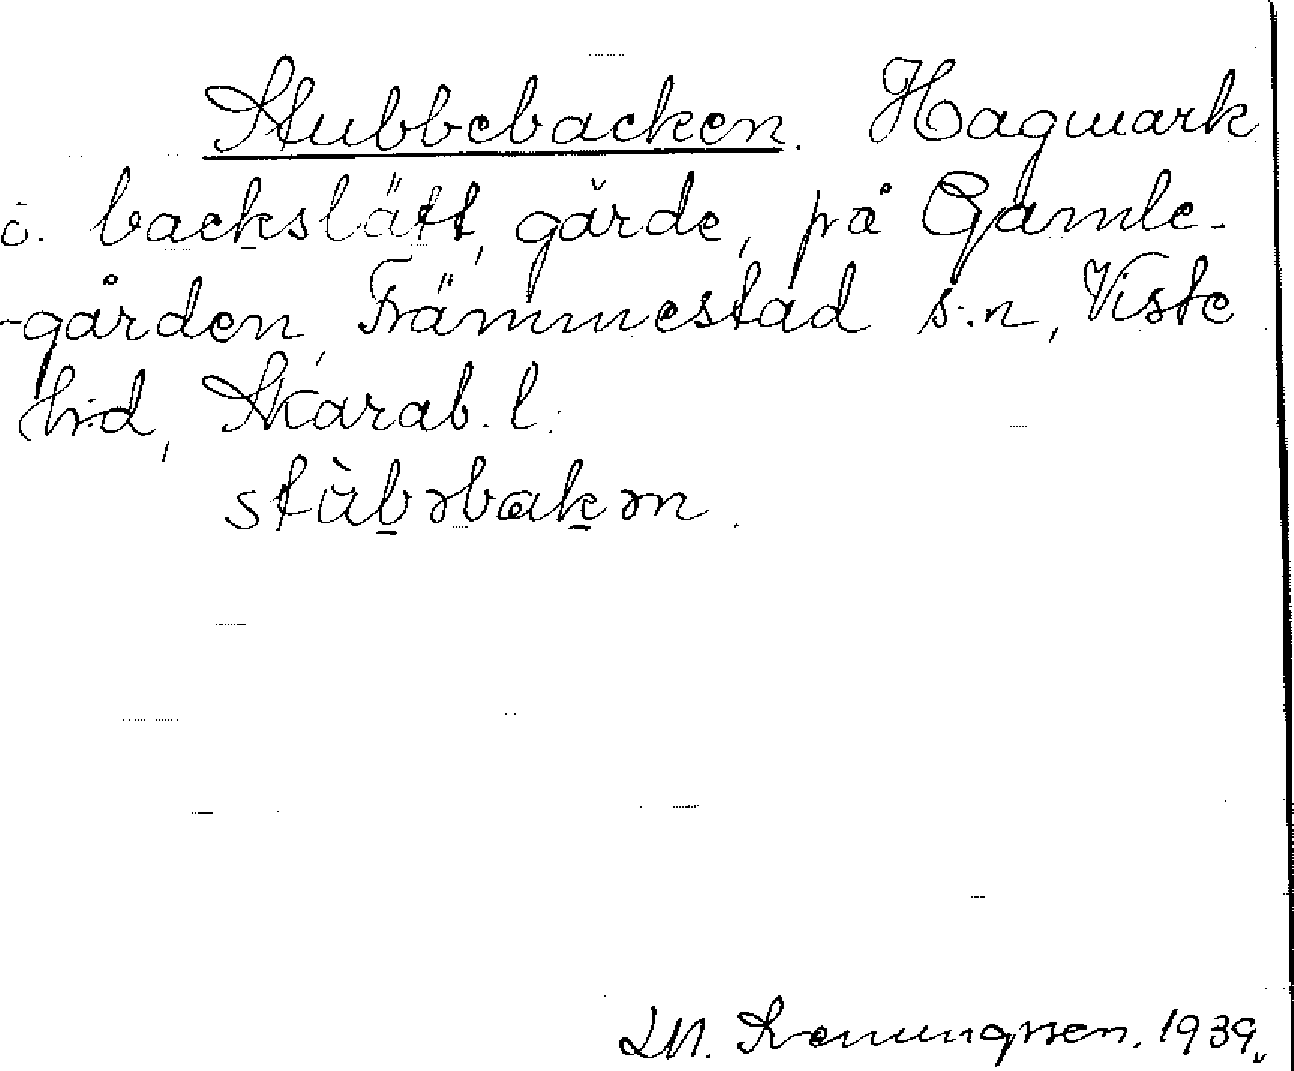 Stubbebacken. Hagmark
o. backslätt, gärde, på Gamle-
-gården, Främmestad s:n, Viste
hd, Skarab. l.
stùbəbakən.
1939.